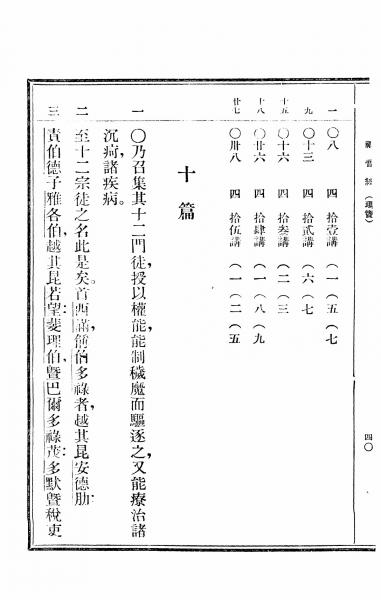 福音經（瑪竇）
四〇
一 〇八 四 拾壹講（一（五（七
九 〇十三 四 拾貳講（六（七
十五 〇十六 四 拾叁講（二（三
十八 〇廿六 四 拾肆講（一（八（九
廿七 〇卅八 四 拾伍講（一（二（五
十篇
一 〇乃召集其十二門徒，授以權能，能制穢魔而驅逐之，又能療治諸
沉疴，諸疾病。
二 至十二宗徒之名此是矣。首西滿，簡伯多祿者，越其昆安德肋
三 責伯德子雅各伯，越其昆若望；斐理伯，暨巴爾多祿茂；多默暨稅吏